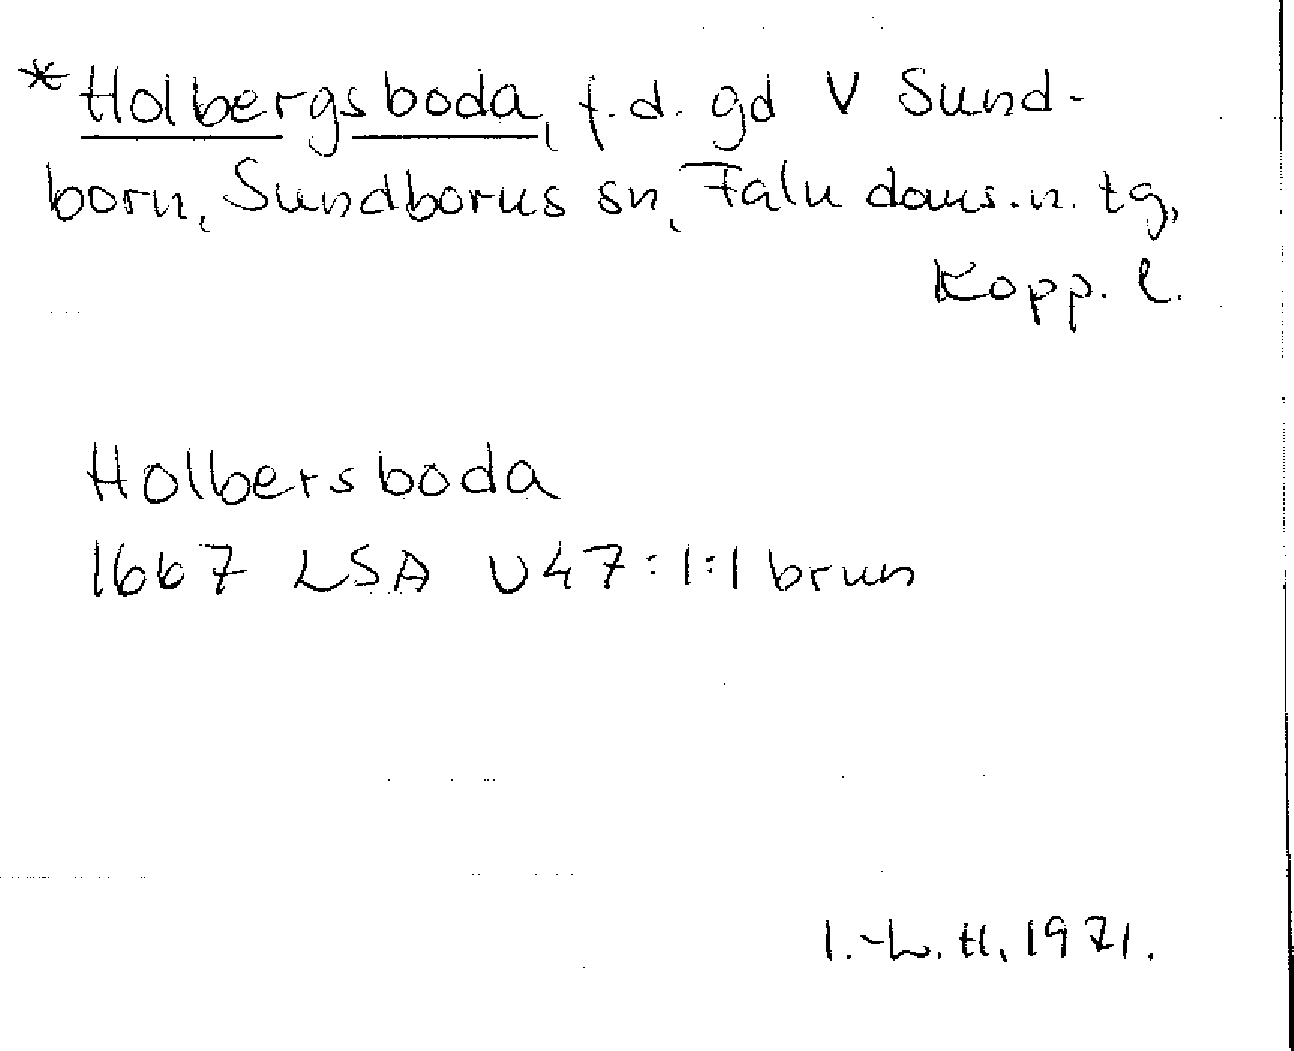 *Holbergsboda, f.d. gd V Sund-
born, Sundborns sn, Falu doms.n. tg,
Kopp. l.
Holbersboda
1667 LSA U47:1:1 brun
I.-L. H. 1971.